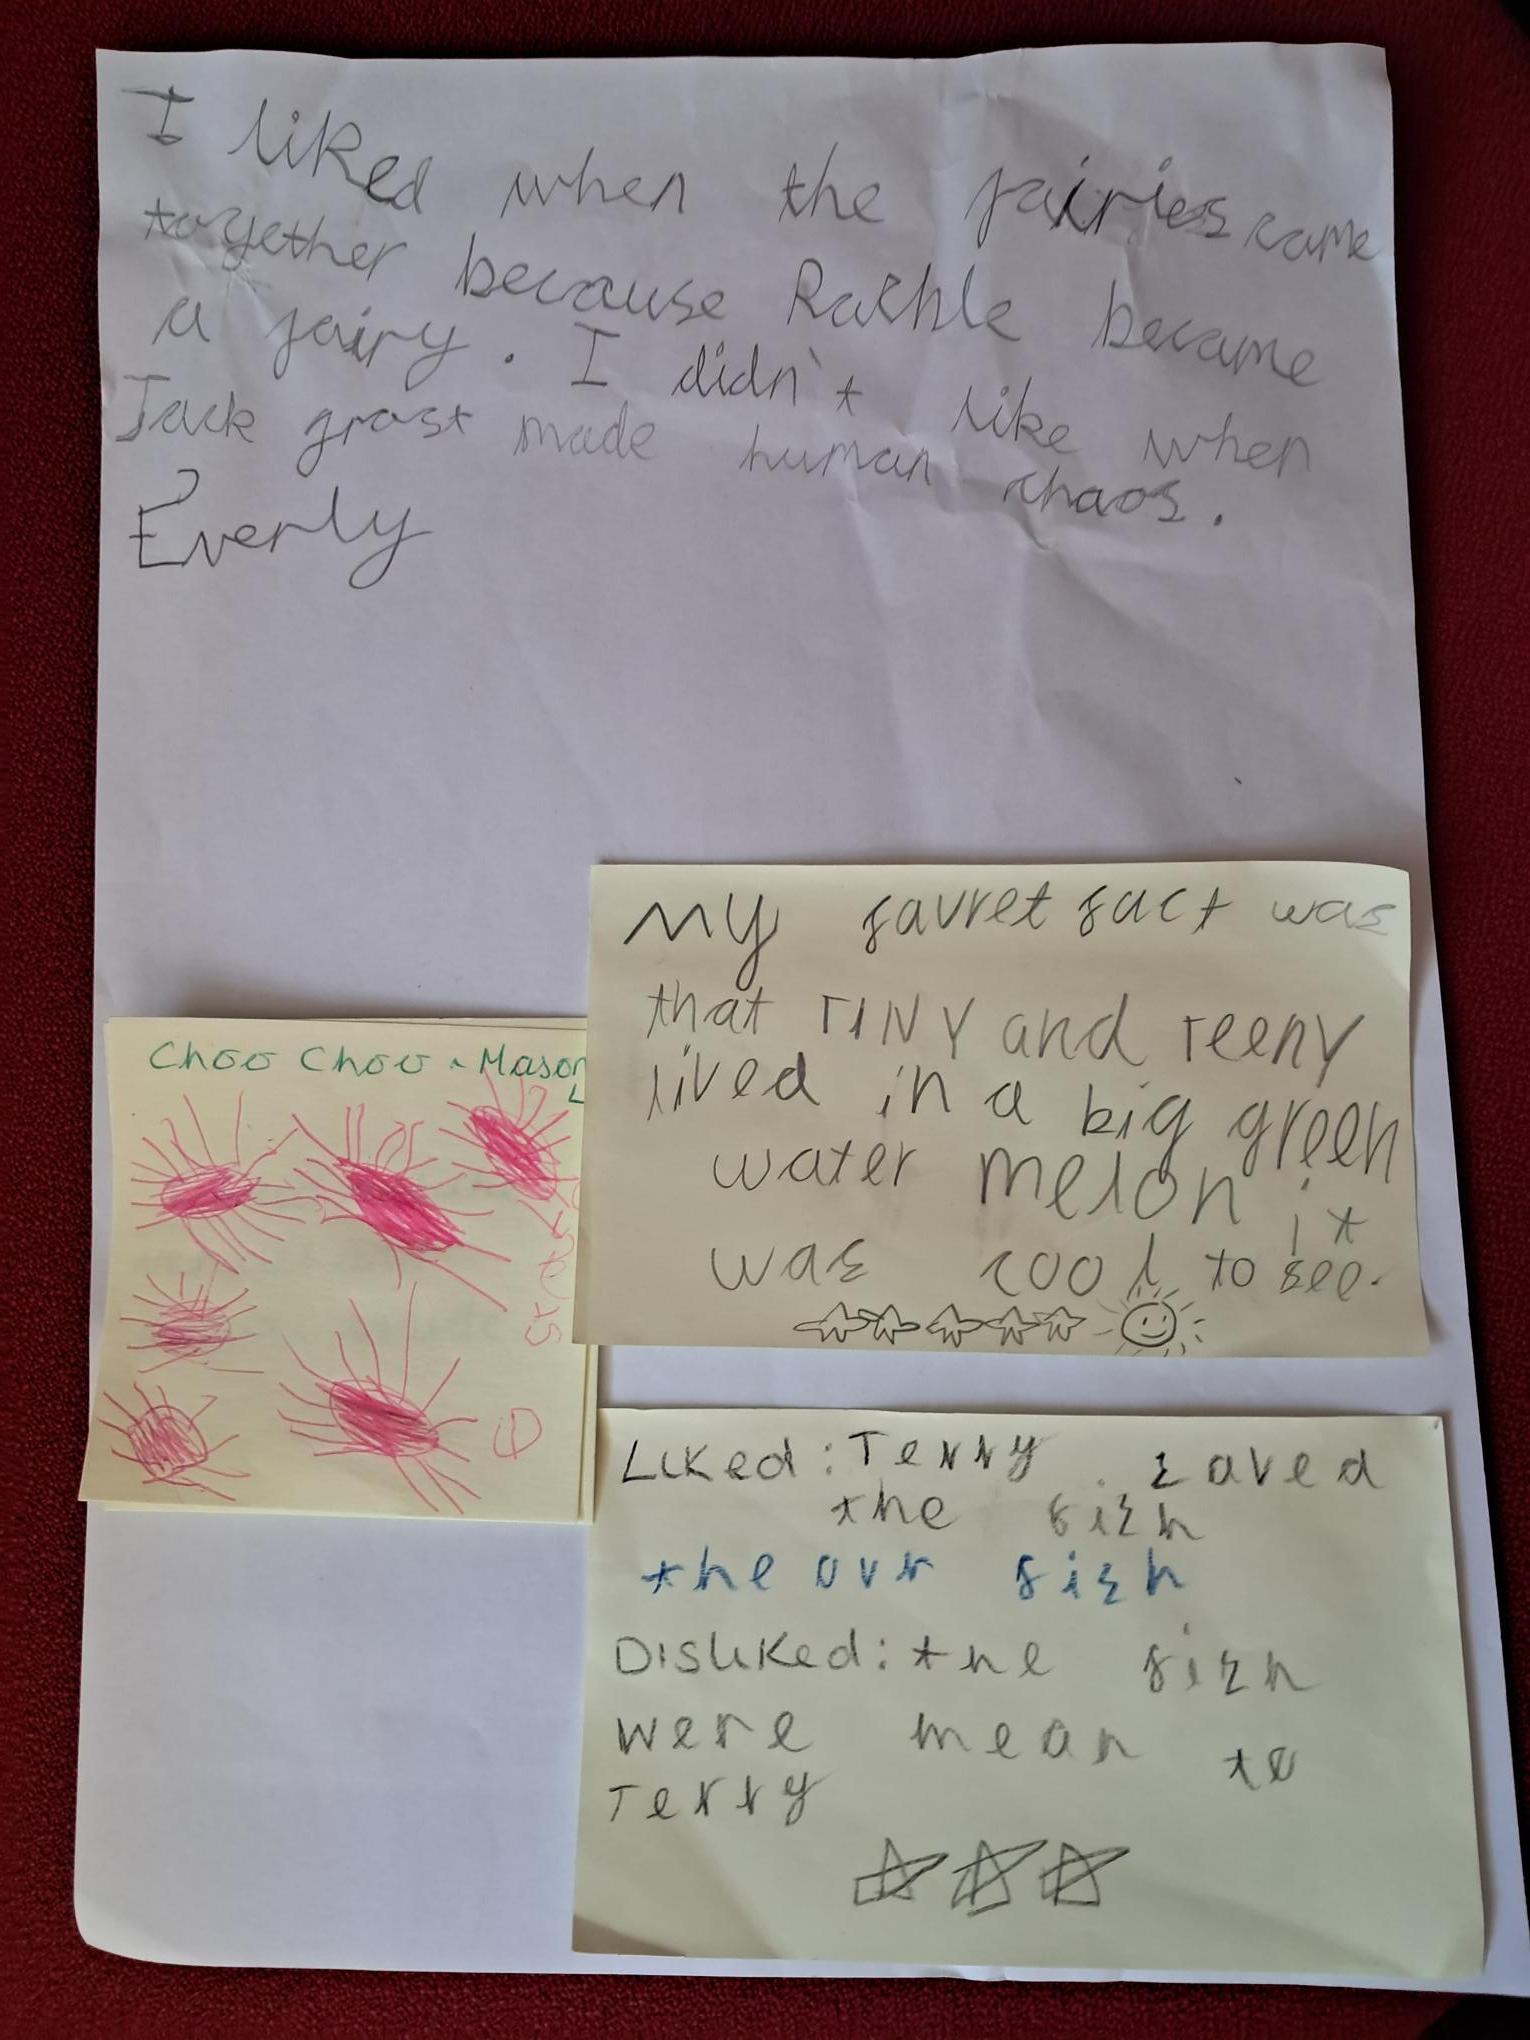 I liked when the fairies came
together because Rachle became
a fairy. I didn't like when
Jack grost made human chaos.
Everly
My favret fact was
that TINY and Teeny
lived in a big green
water melon it
was cool to see.
Choo Choo - Mason
Liked: Terry saved
the fish
the ovr fish
Disliked: the fish
were mean to
Terry